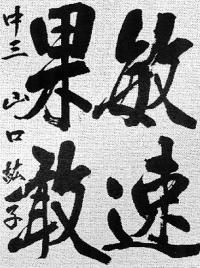 敏速
果敢
中三 山口紘子